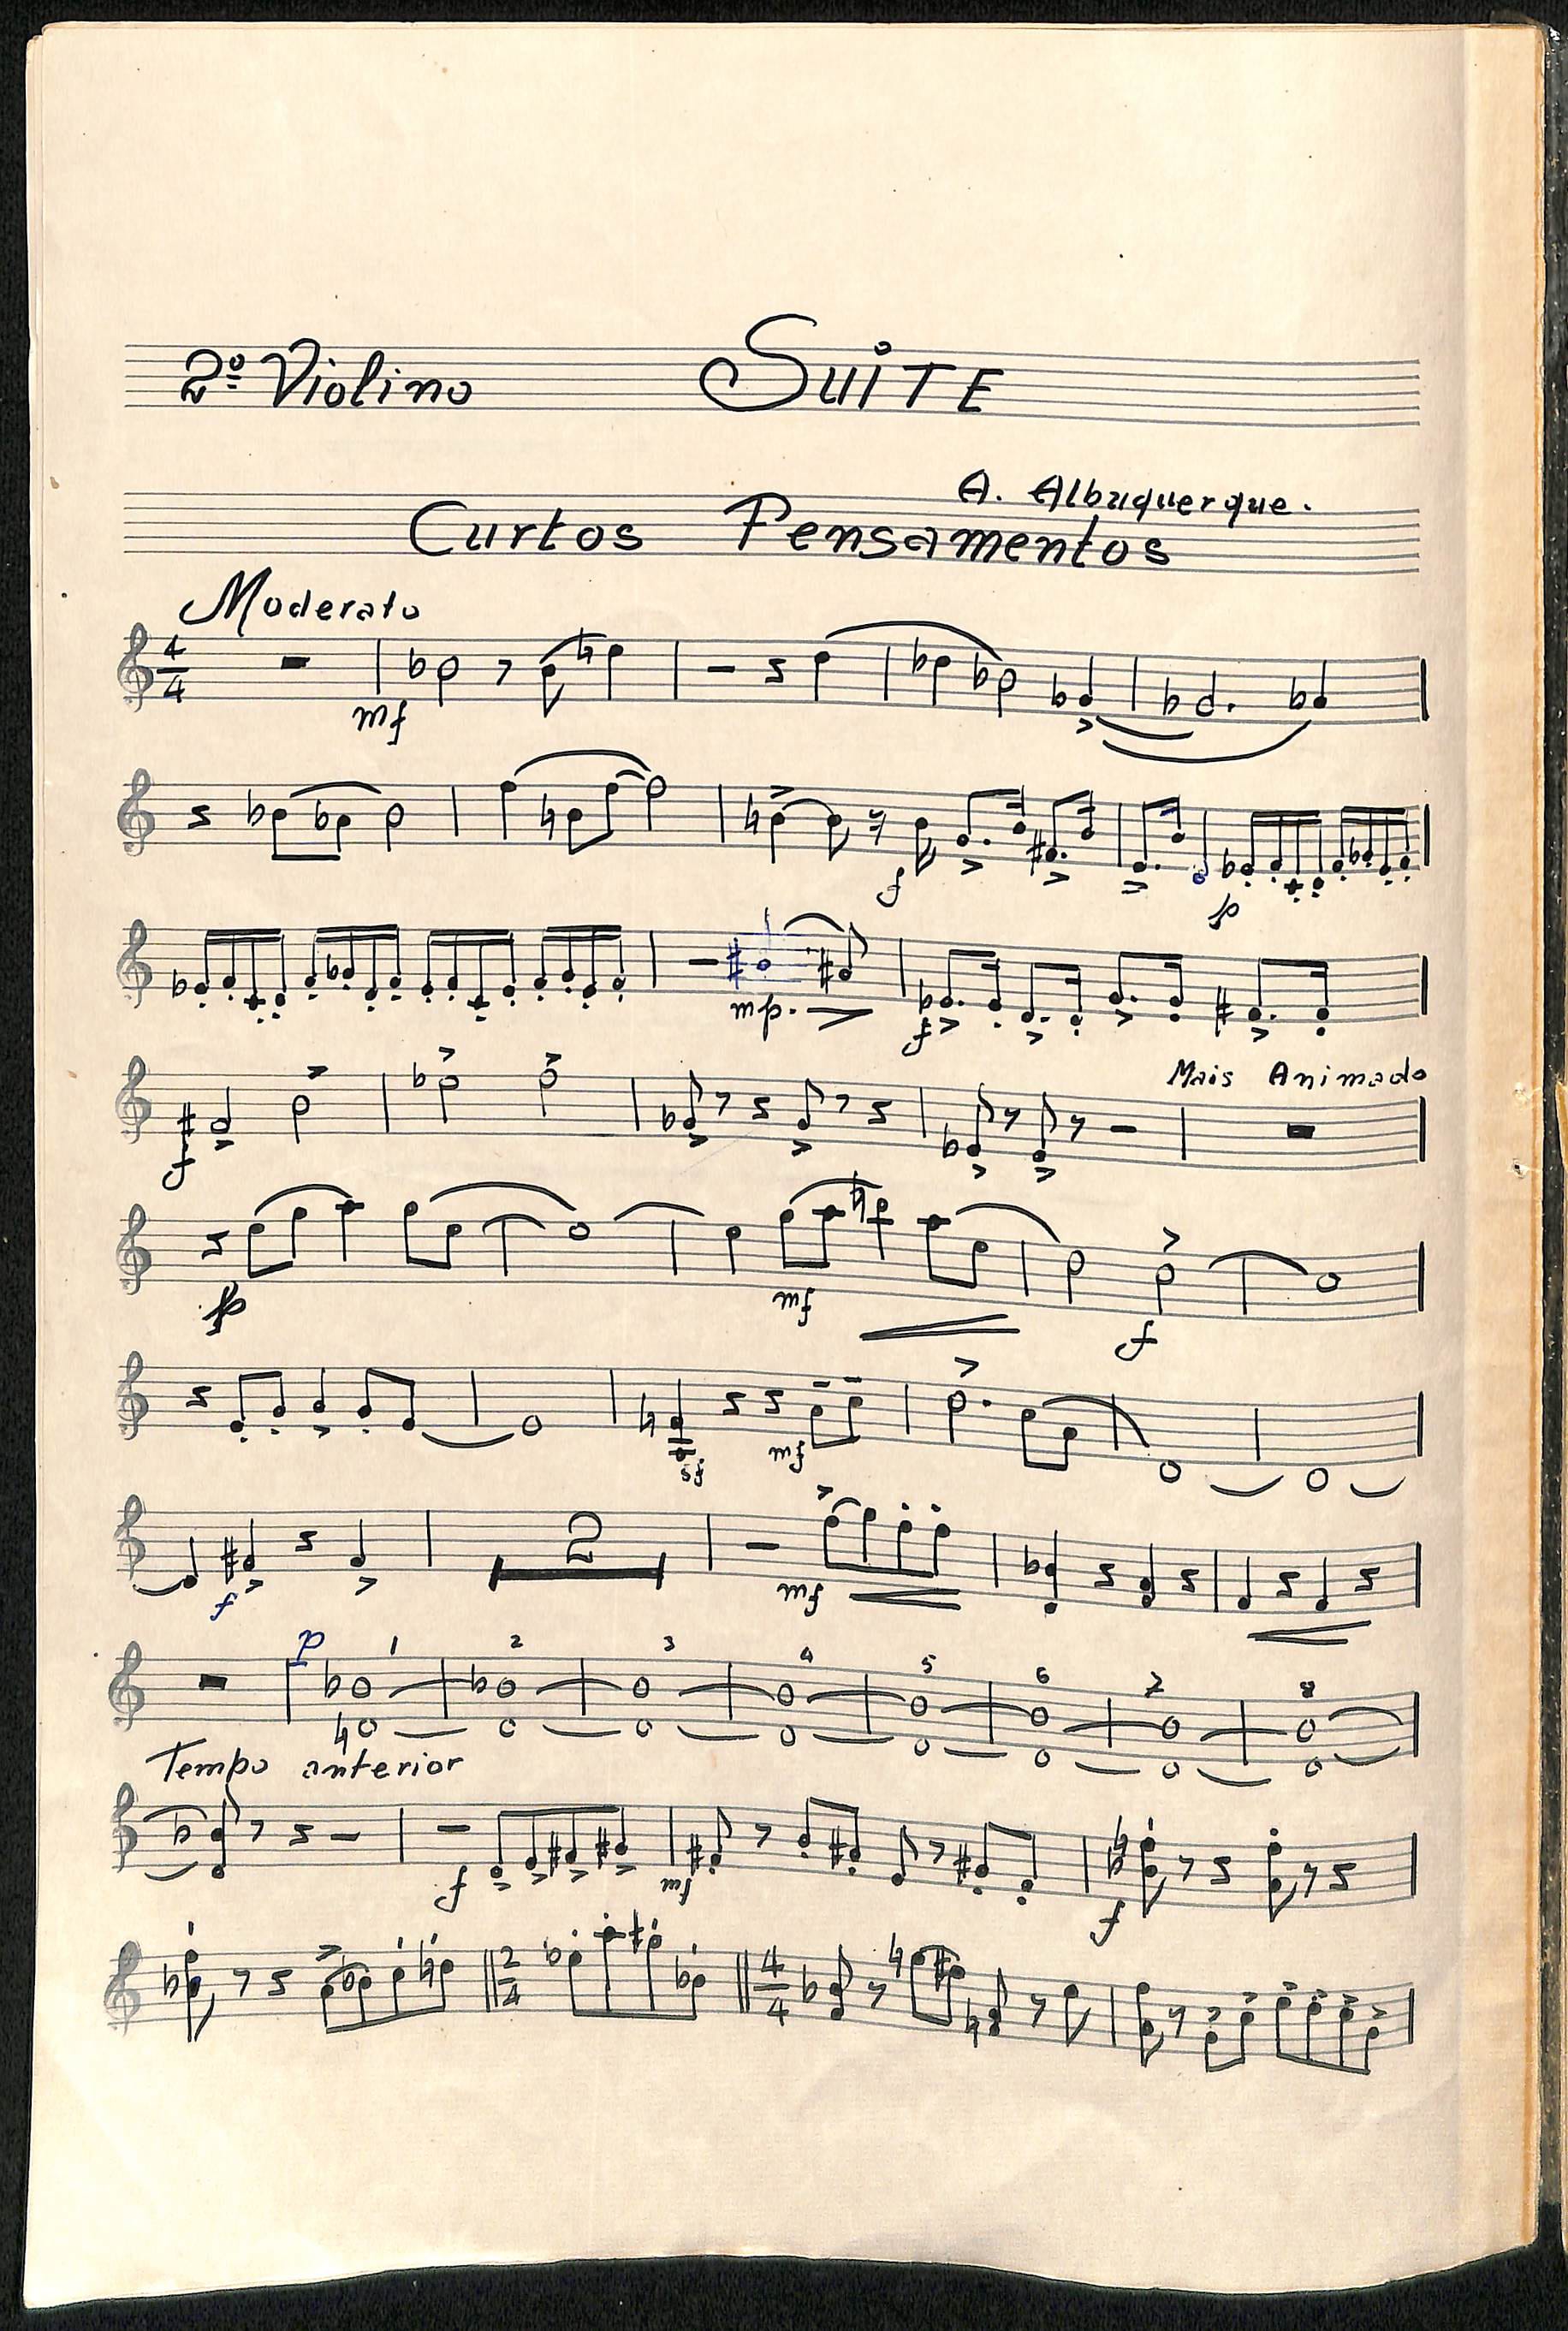 2º Violino Suite
A. Albuquerque.
Curtos Pensamentos
Moderato
4
4
mf
f
p
mp
f
Mais Animado
f
p
mf
f
mf
f
2
mf
p
1 2 3 4 5 6 7 8
Tempo anterior
f mf f
2
4
4
4